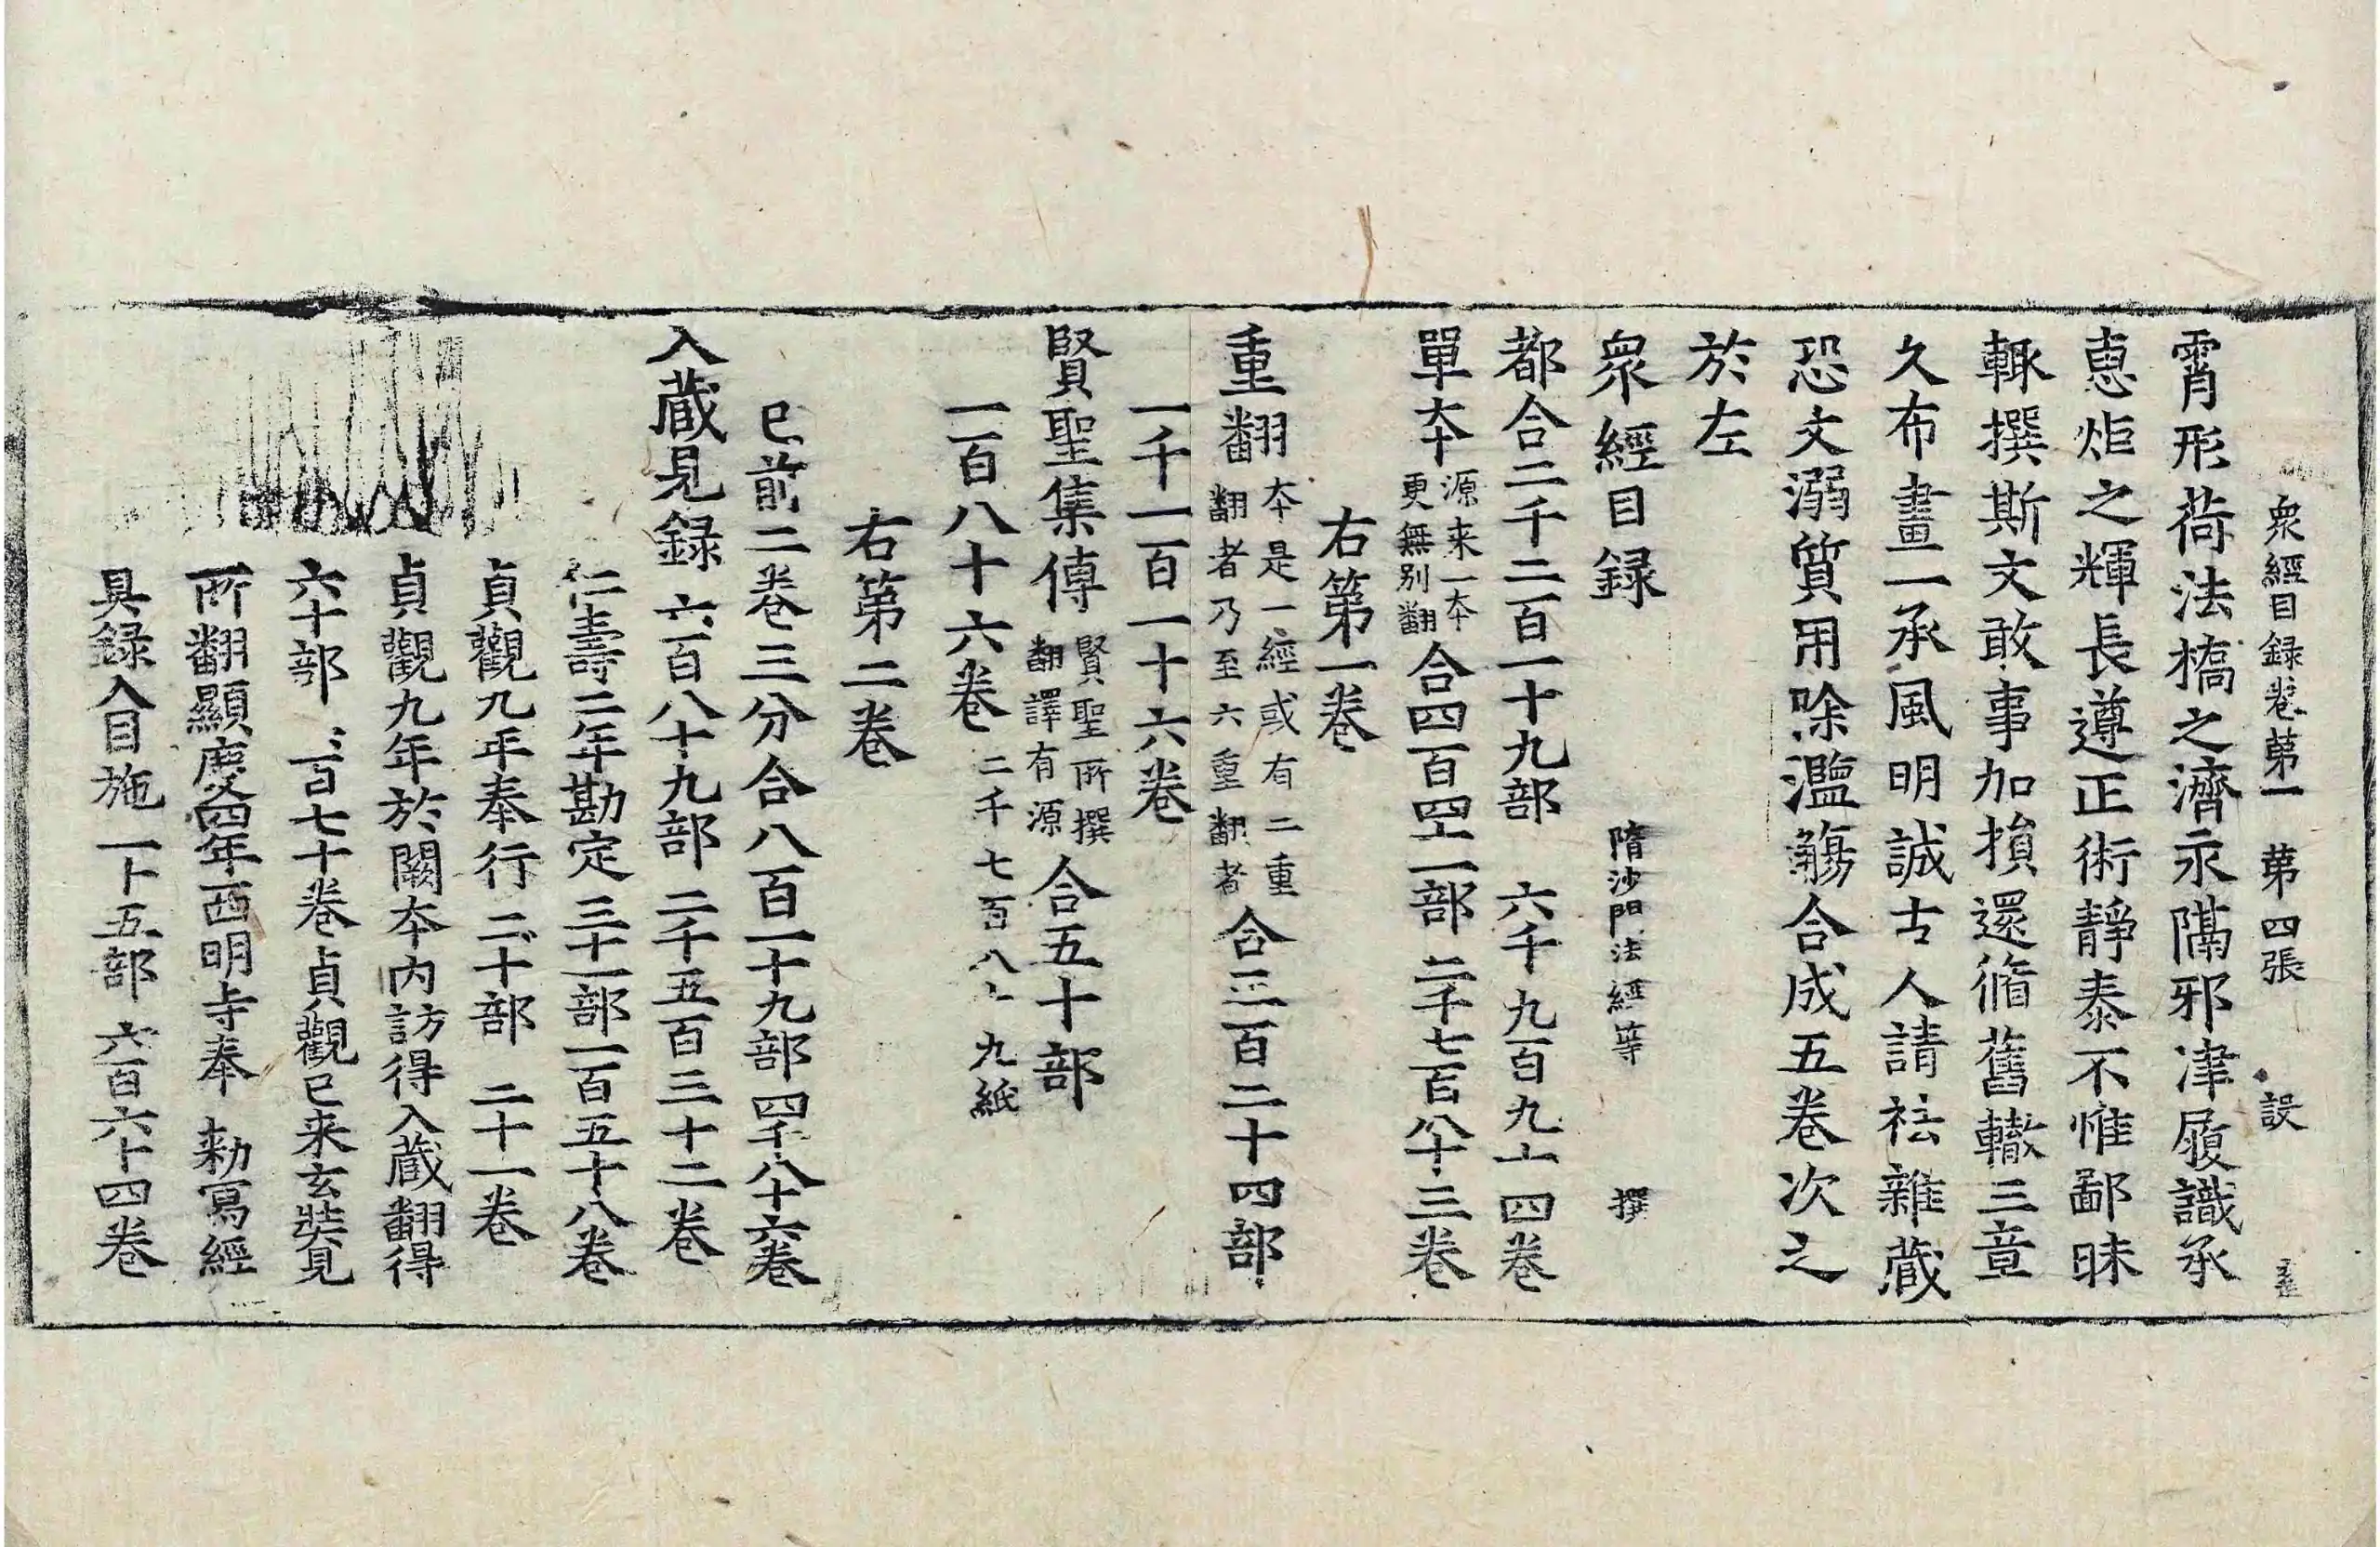 衆經目録卷苐一 苐四張 設
霄形荷法橋之濟永隔邪津履識承
惠炬之輝長遵正術靜泰不惟鄙昧
輙撰斯文敢事加損還脩舊轍三章
久布畫一承風明誠古人請袪雜蔵
恐文溺質用除濫觴合成五卷次之
於左
衆經目録 隋沙門法經等 撰
都合二千二百一十九部 六千九百九十四卷
單本 源来一本 更無別翻 合四百四十一部 二千七百八十三卷
右第一卷
重翻 本是一經或有二重 翻者乃至六重翻者 合三百二十四部
一千一百一十六卷
賢聖集傳 賢聖所撰 翻譯有源 合五十部
一百八十六卷 二千七百八十九紙
右第二卷
已前二卷三分合八百一十九部四千八十六卷
入蔵見録 六百八十九部 二千五百三十二卷
仁壽二年勘定 三十一部一百五十八卷
貞觀九年奉行 二十部 二十一卷
貞觀九年於闕本内訪得入蔵翻得
六十部 一百七十卷 貞觀已来玄奘見
所翻顯慶四年西明寺奉 勅寫經
具録入目施一十五部 六百六十四卷